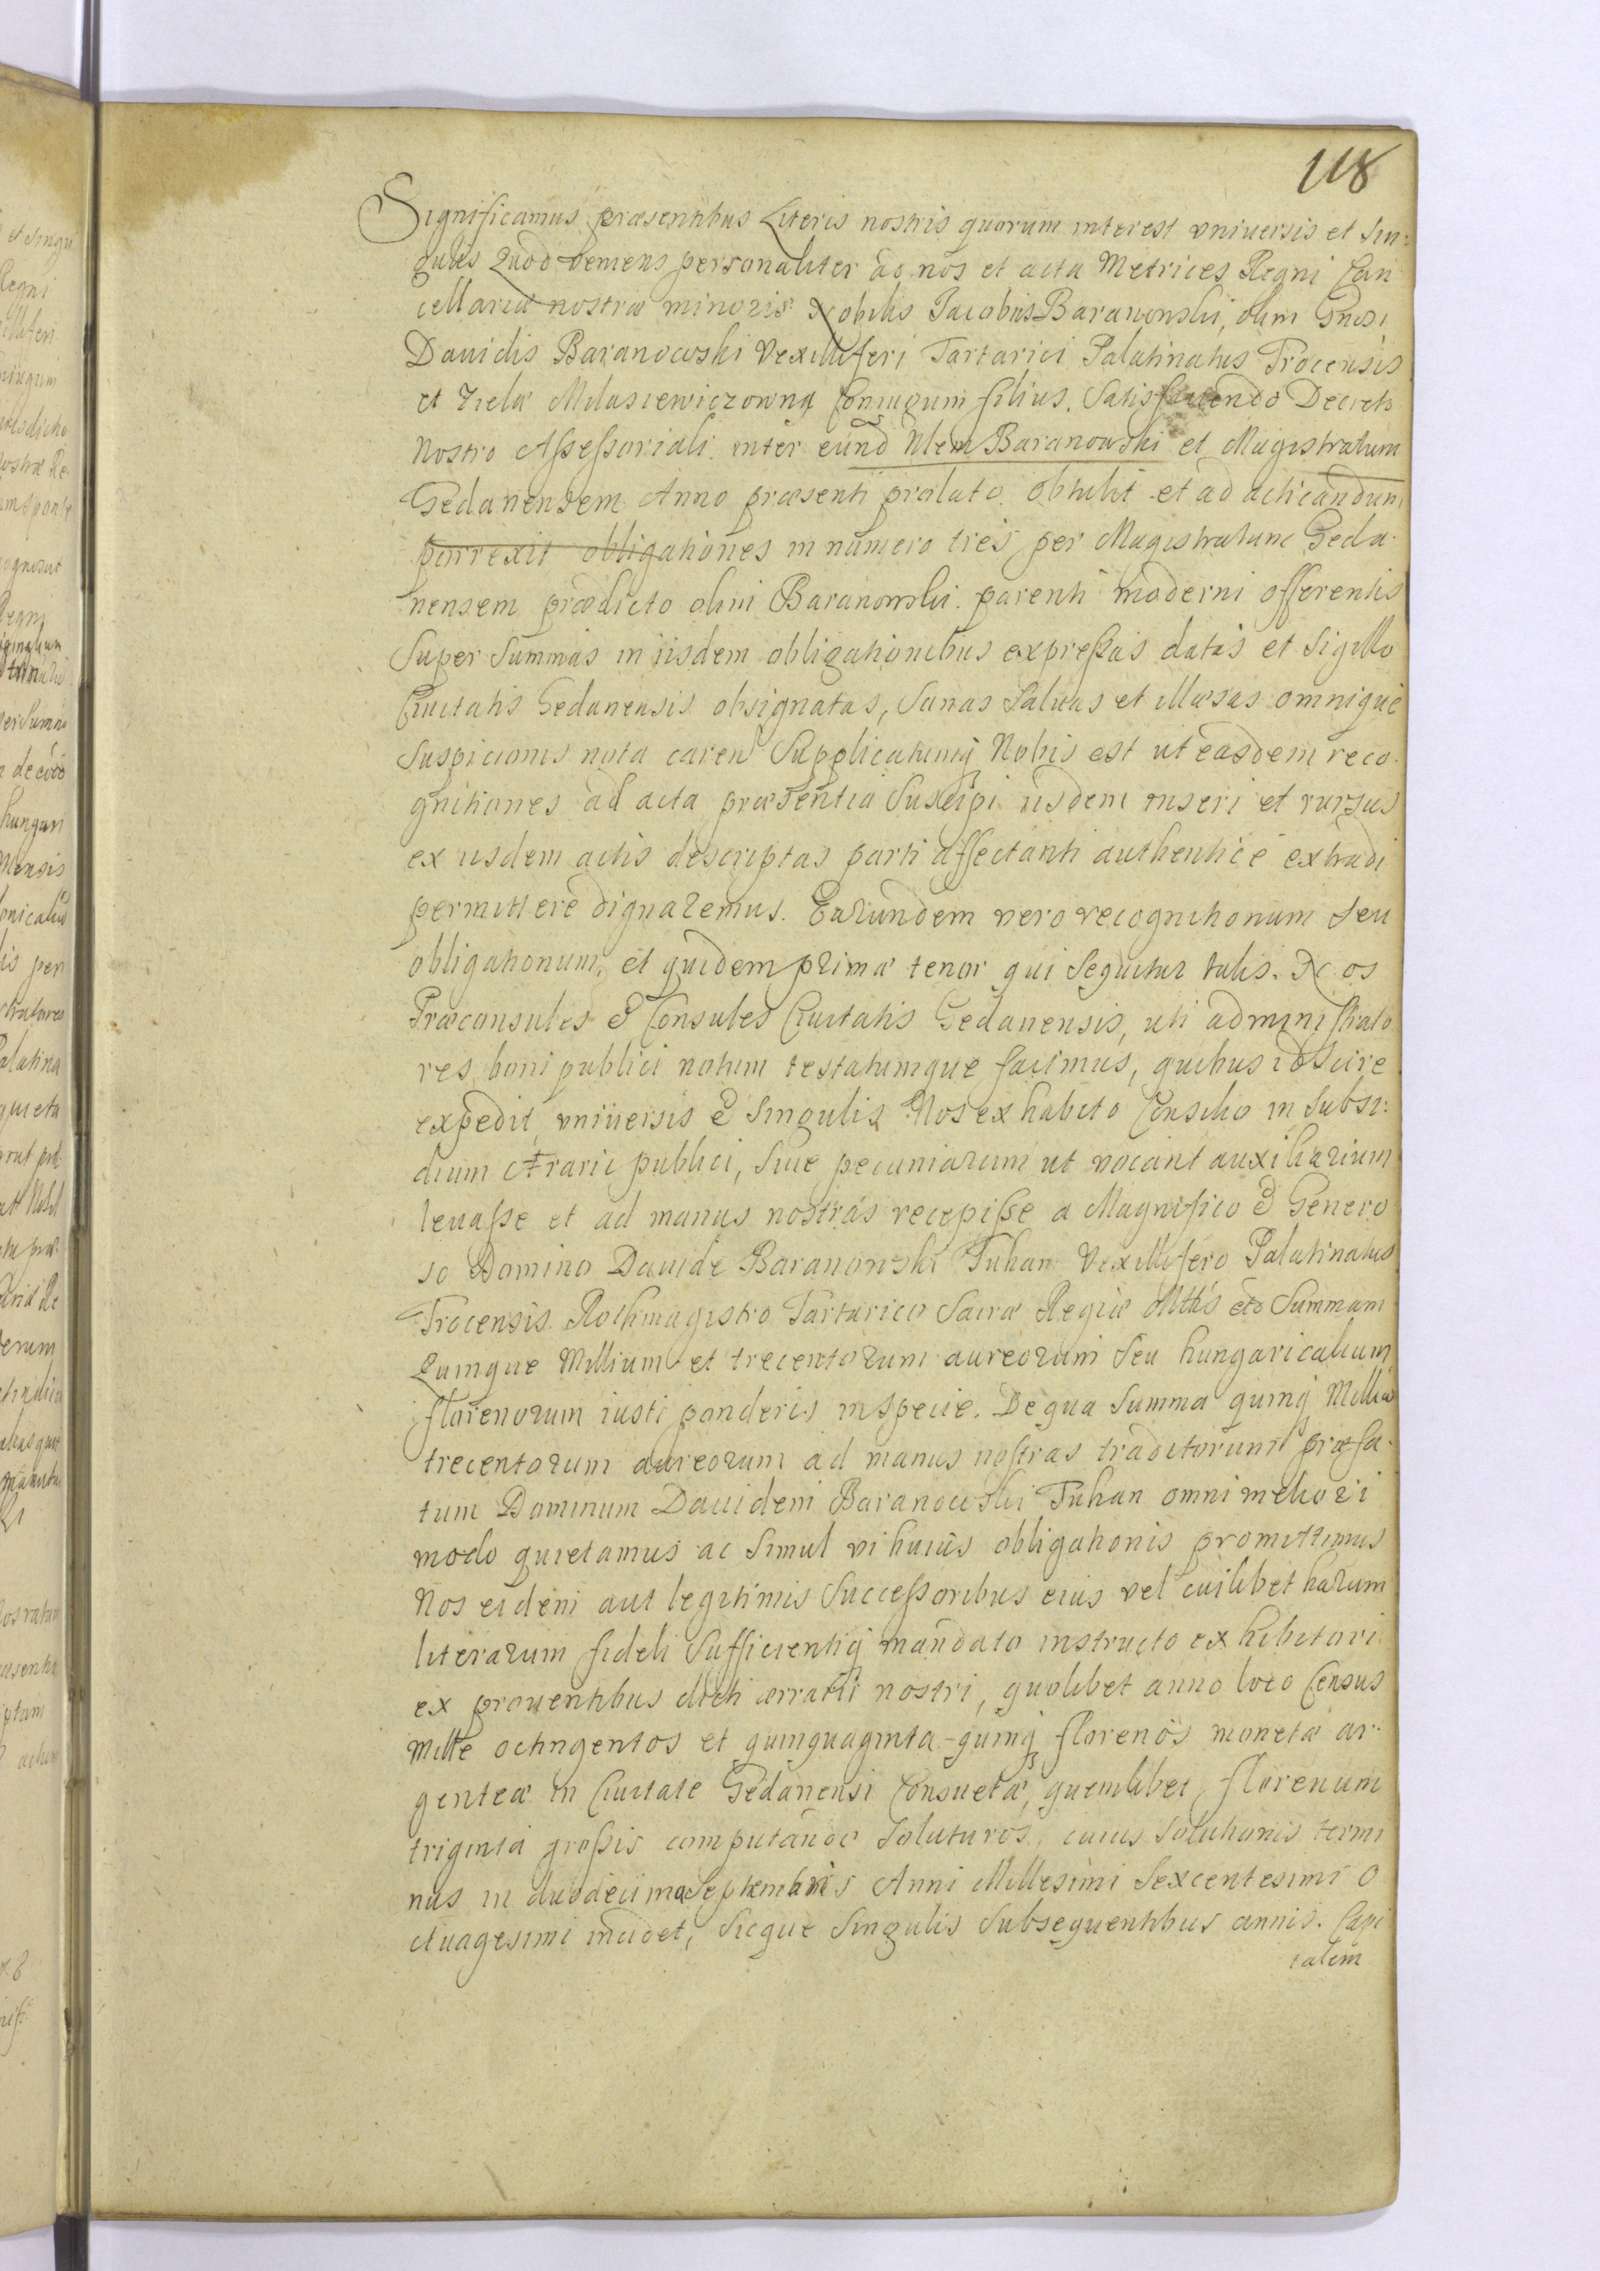 118
Significamus præsentibus Literis nostris quorum interest vniuersis et sin:
gulis Quod veniens personaliter ad nos et acta Metrices Regni Can
cellariæ nostræ minoris Nobilis Jacobus Baranowski, olim Gnosi
Dauidis Baranowski Vexilliferi Tartarici Palatinatus Trocensis
et Zielæ Milasiewiczowna Coniugum filius. Satisfaciendo Decreto
Nostro Assessoriali inter eund Nlem Baranowski et Magistratum
Gedanensem Anno præsenti prolato obtulit et ad acticandum
porrexit obligationes in numero tres per Magistratum Geda-
nensem prædicto olim Baranowski parenti moderni offerentis
Super Summas in iisdem obligationibus expressas datas et Sigillo
Ciuitatis Gedanensis obsignatas, Sanas Saluas et illæsas omnique
Suspicionis nota caren Supplicatumq Nobis est ut easdem reco-
gnitiones ad acta præsentia Suscipi iisdem inseri et rursus
ex iisdem actis descriptas parti affectanti authenticè extradi
permittere dignaremus. Earundem vero recognitionum seu
obligationum, et quidem primæ tenor qui sequitur talis. Nos
Præconsules & Consules Ciuitatis Gedanensis, uti administrato
res boni publici notum testatumque facimus, quibus id scire
expedit, vniuersis & Singulis Nos ex habito Consilio in Subsi:
dium Ærarii publici, Siue pecuniarum ut vocant auxiliarium
leuasse et ad manus nostras recepisse a Magnifico & Genero
so Domino Dauide Baranowski Tuhan Vexillifero Palatinatus
Trocensis Rothmagistro Tartarico Sacræ Regiæ Mttis etc Summam
Quinque Millium et trecentorum aureorum Seu hungaricalium
florenorum iusti ponderis in specie. De qua Summa quinq Milliū
trecentorum aureorum ad manus nostras traditorum præfa-
tum Dominum Dauidem Baranowski Tuhan omni meliori
modo quietamus ac simul vi huius obligationis promittimus
Nos eidem aut legitimis Successoribus eius vel cuilibet harum
literarum fideli Sufficientiq mandato instructo exhibitori
ex prouentibus dicti ærrarii nostri, quolibet anno loco Census
Mille octingentos et quinquaginta-quinq florenos monetæ ar-
genteæ in Ciuitate Gedanensi Consuetæ, quemlibet florenum
triginta grossis computando Soluturos, cuius Solutionis termi
nus in duodecima Septembris Anni Millesimi Sexcentesimi O
ctuagesimi incidet, Sicque Singulis Subsequentibus annis. Capi
talem